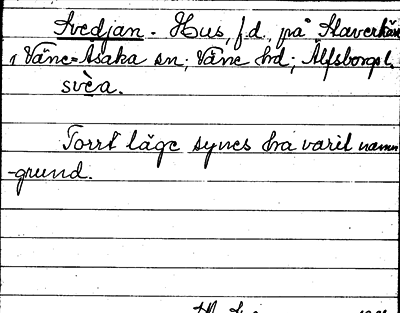 Svedjan. Hus, f.d., på Slaverkärr
i Väne-Åsaka sn; Väne hd; Älfsborgs l.
svèa.
Torrt läge synes ha varit namn
-grund.